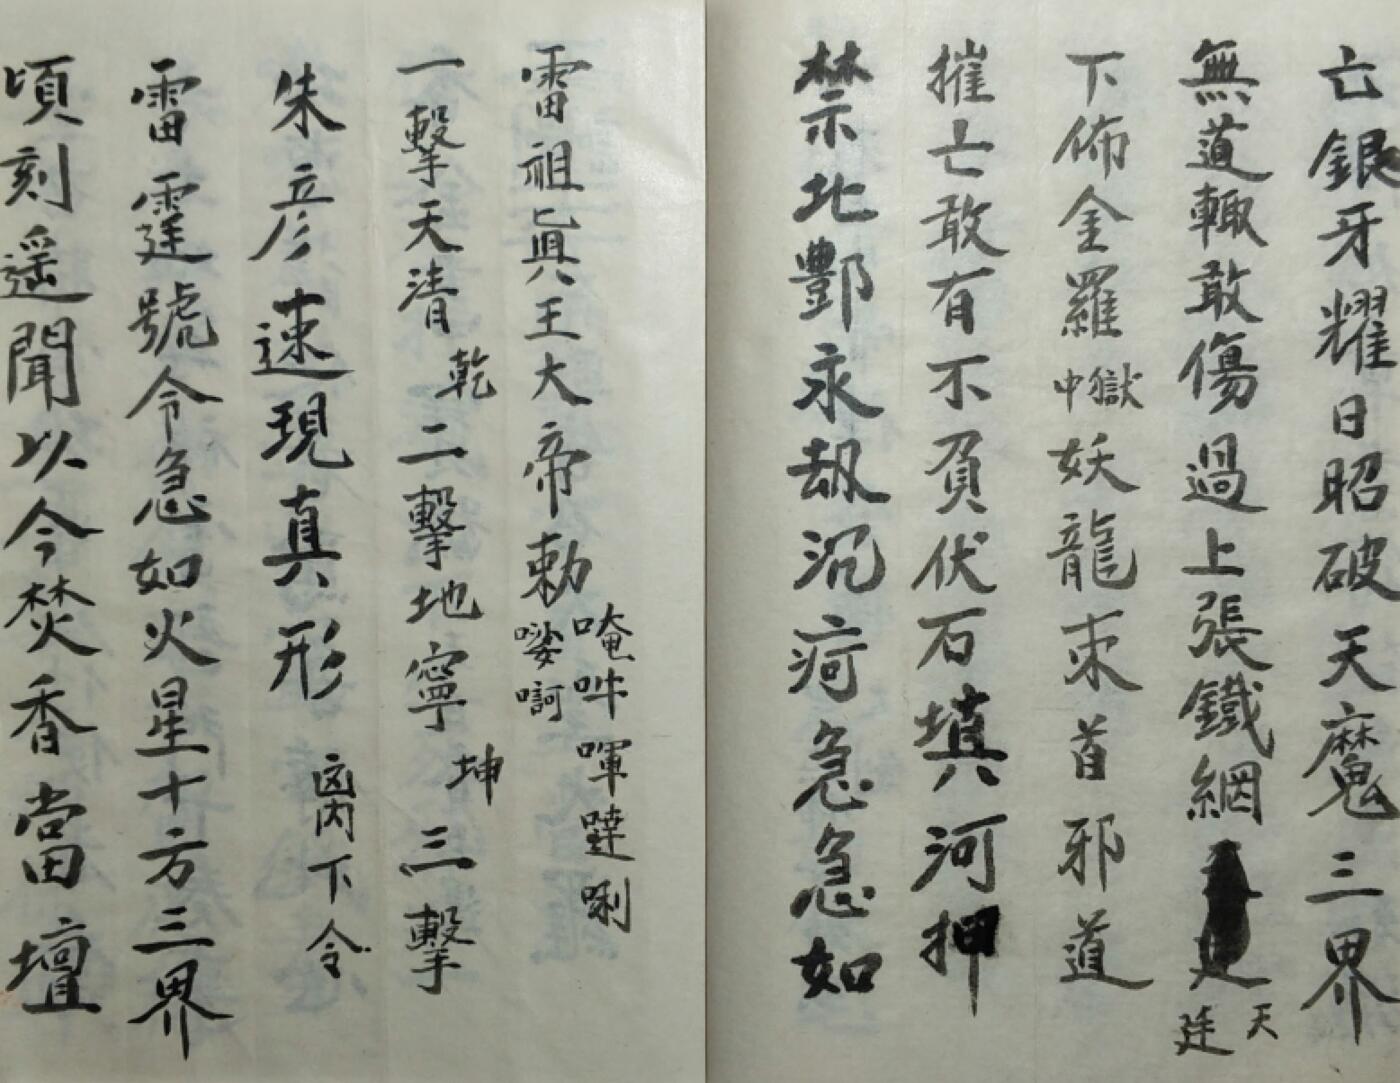 亡銀牙耀日昭破天魔三界
無道輙敢傷過上張鐵網天廷
下佈金羅中獄妖龍束首邪道
摧亡敢有不負伏石填河押
禁北酆永劫沉疴急急如
雷祖眞王大帝勅唵吽喗噠唎㗌訶
一擊天清乾二擊地寧坤三擊
朱彦速現真形 下令
雷霆號令急如火星十方三界
頃刻遥聞以今焚香當壇